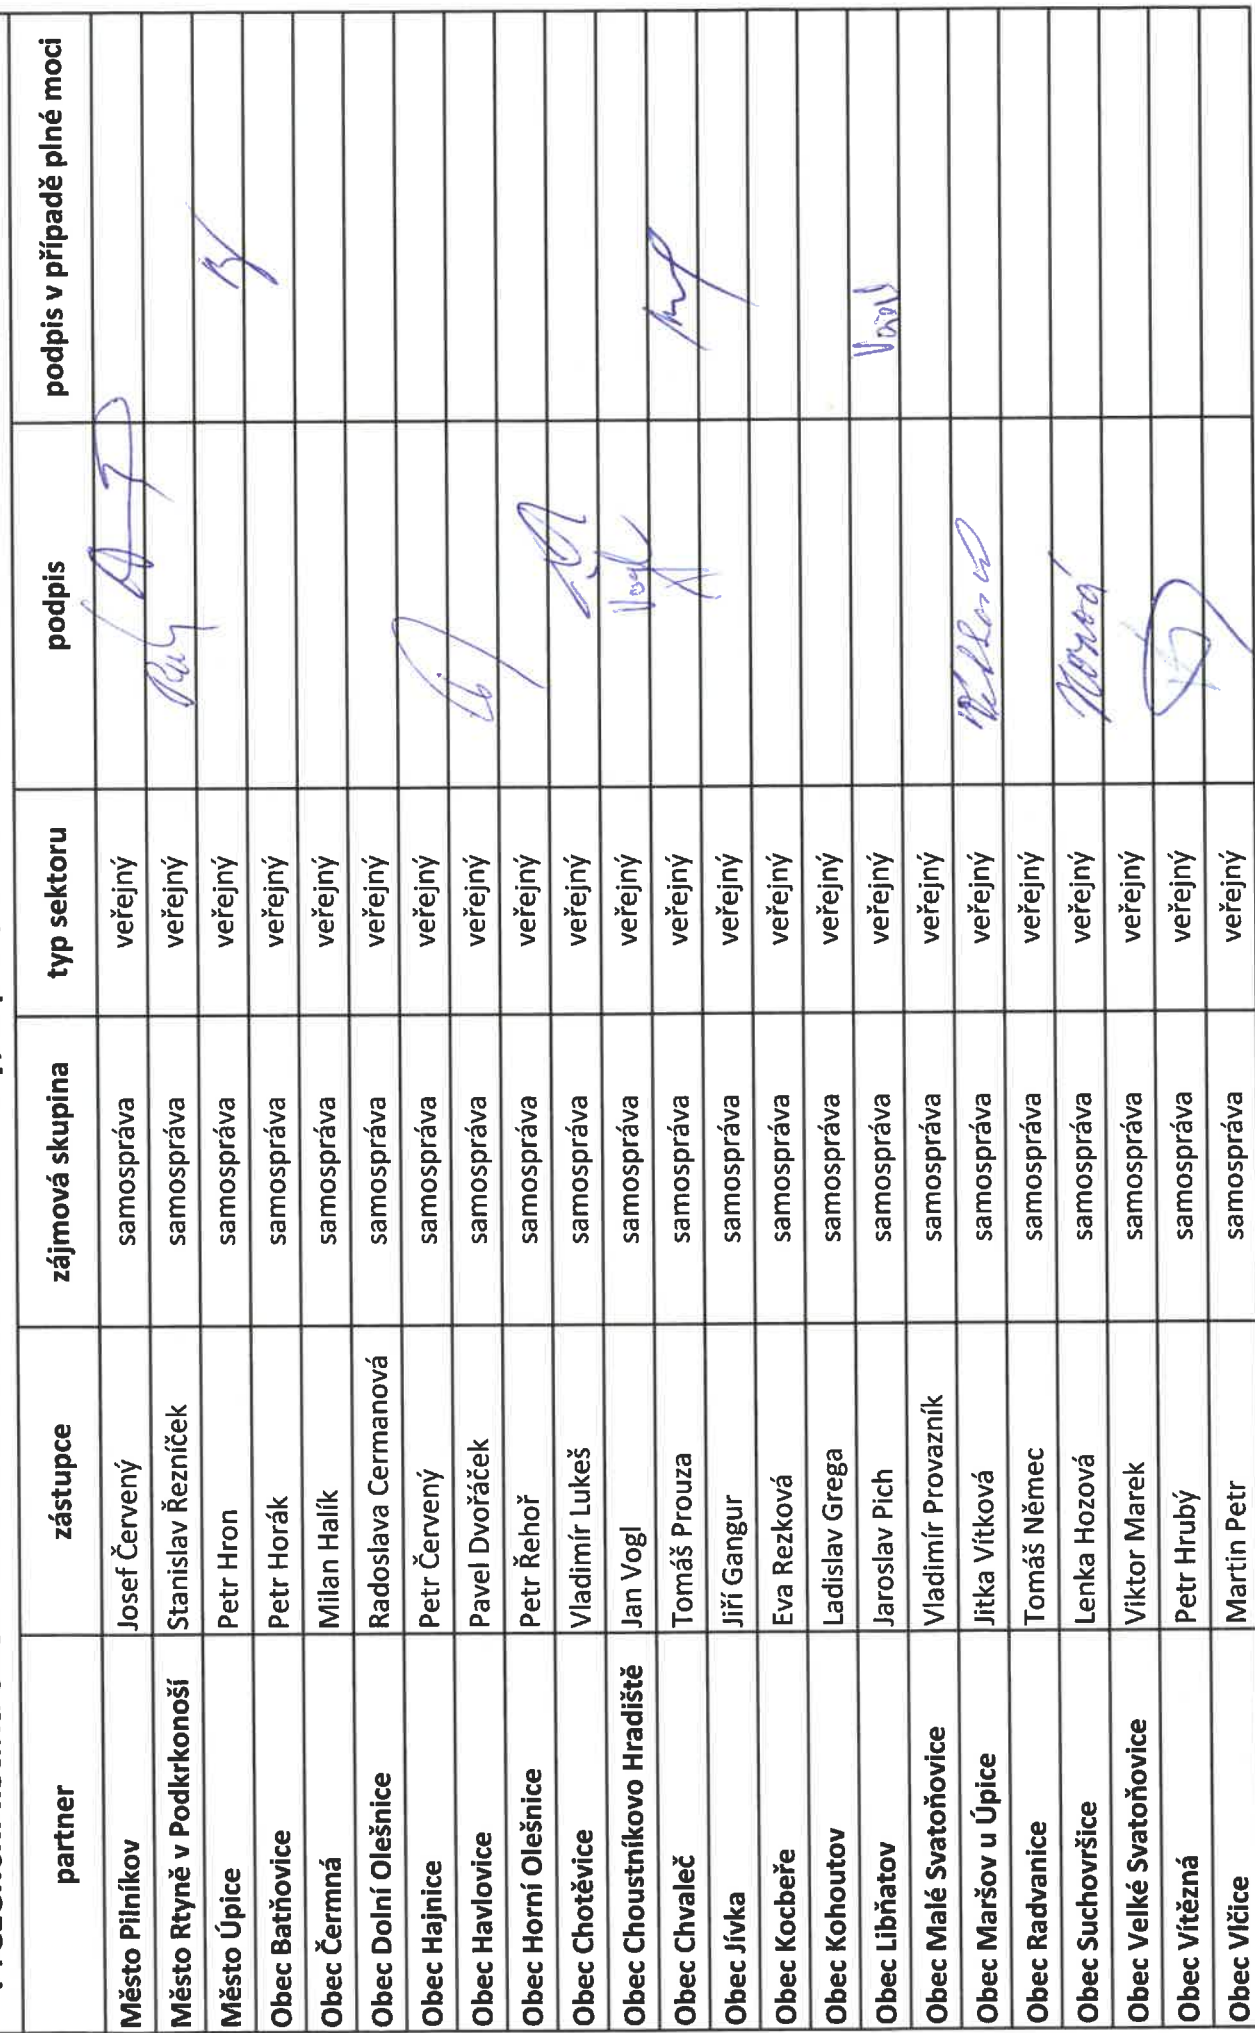 partner zástupce zájmová skupina typ sektoru podpis podpis v případě plné moci
Město Pilníkov Josef Červený samospráva veřejný
Město Rtyně v Podkrkonoší Stanislav Řezníček samospráva veřejný
Město Úpice Petr Hron samospráva veřejný
Obec Batňovice Petr Horák samospráva veřejný
Obec Čermná Milan Halík samospráva veřejný
Obec Dolní Olešnice Radoslava Cermanová samospráva veřejný
Obec Hajnice Petr Červený samospráva veřejný
Obec Havlovice Pavel Dvořáček samospráva veřejný
Obec Horní Olešnice Petr Řehoř samospráva veřejný
Obec Chotěvice Vladimír Lukeš samospráva veřejný
Obec Choustníkovo Hradiště Jan Vogl samospráva veřejný Vogl
Obec Chvaleč Tomáš Prouza samospráva veřejný
Obec Jívka Jiří Gangur samospráva veřejný
Obec Kocbeře Eva Rezková samospráva veřejný
Obec Kohoutov Ladislav Grega samospráva veřejný
Obec Libňatov Jaroslav Pich samospráva veřejný
Obec Malé Svatoňovice Vladimír Provazník samospráva veřejný
Obec Maršov u Úpice Jitka Vítková samospráva veřejný
Obec Radvanice Tomáš Němec samospráva veřejný
Obec Suchovršice Lenka Hozová samospráva veřejný Hozová
Obec Velké Svatoňovice Viktor Marek samospráva veřejný
Obec Vítězná Petr Hrubý samospráva veřejný
Obec Vlčice Martin Petr samospráva veřejný